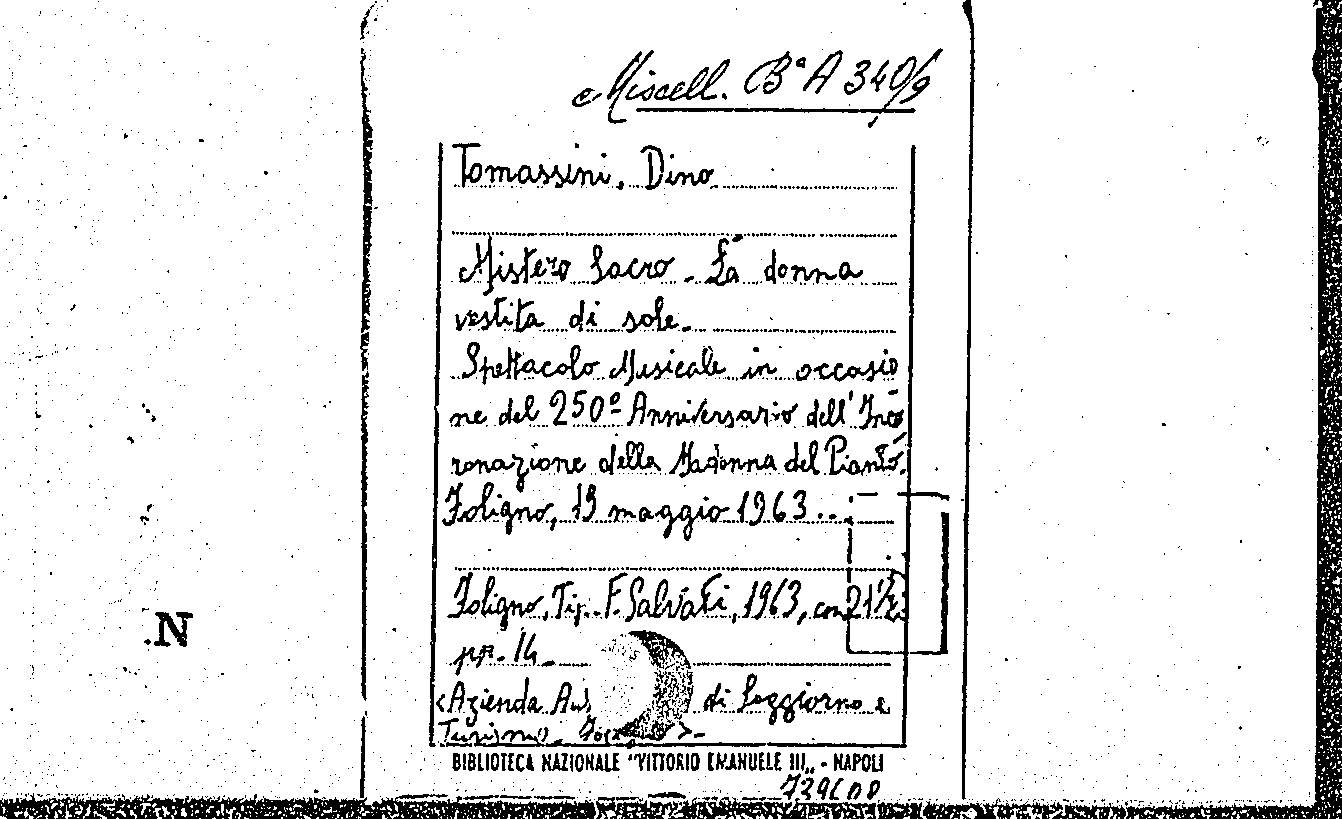 Miscell. Bª A 340/9
Tomassini, Dino
Mistero Sacro - La donna
vestita di sole.
Spettacolo Musicale in occasio
ne del 250º Anniversario dell'Inco
ronazione della Madonna del Pianto.
Foligno, 19 maggio 1963...
Foligno, Tip. F. Salvati, 1963, cm 21½
pp. 14.
<Azienda di Soggiorno e
Turismo.
BIBLIOTECA NAZIONALE "VITTORIO EMANUELE III„ - NAPOLI
N